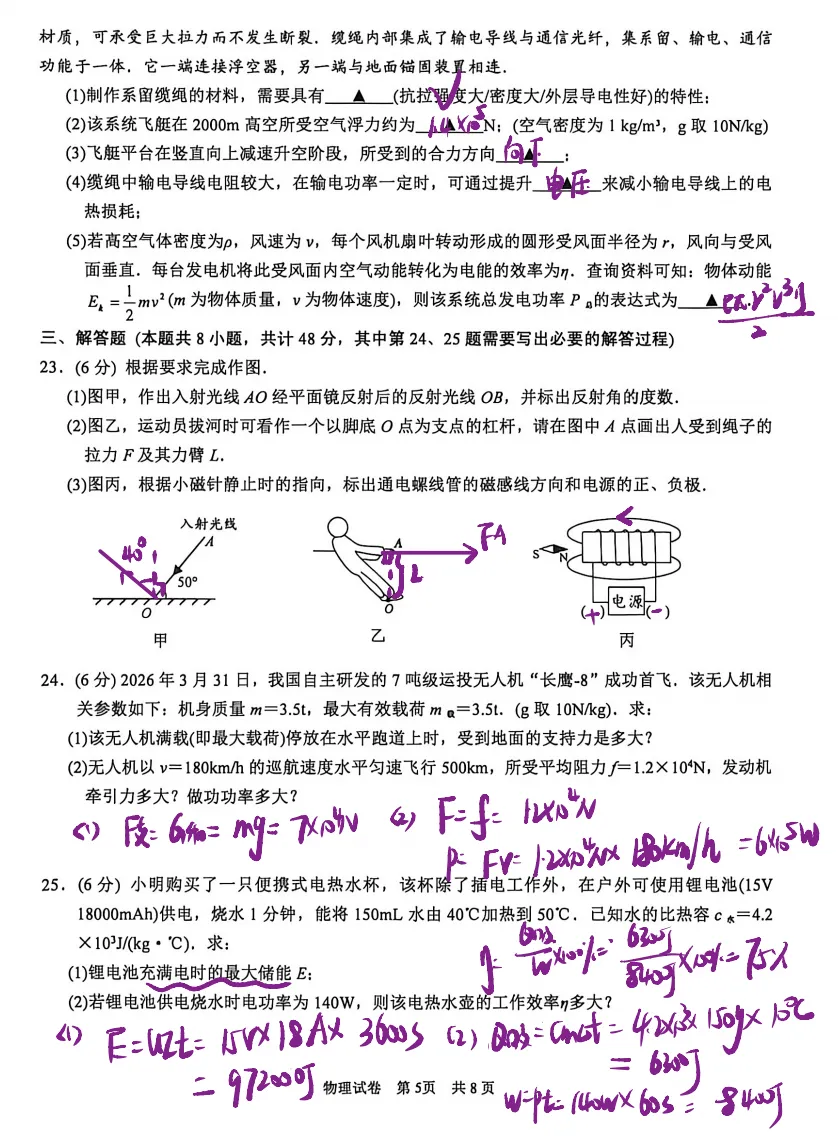 材质，可承受巨大拉力而不发生断裂．缆绳内部集成了输电导线与通信光纤，集系留、输电、通信
功能于一体．它一端连接浮空器，另一端与地面锚固装置相连．
(1)制作系留缆绳的材料，需要具有 ▲ (抗拉强度大/密度大/外层导电性好)的特性；
(2)该系统飞艇在 2000m 高空所受空气浮力约为 ▲ N；(空气密度为 1 kg/m³，g 取 10N/kg)
(3)飞艇平台在竖直向上减速升空阶段，所受到的合力方向 向下 ▲ ；
(4)缆绳中输电导线电阻较大，在输电功率一定时，可通过提升 电压 ▲ 来减小输电导线上的电
热损耗；
(5)若高空气体密度为ρ，风速为 v，每个风机扇叶转动形成的圆形受风面半径为 r，风向与受风
面垂直．每台发电机将此受风面内空气动能转化为电能的效率为η．查询资料可知：物体动能
Eₖ = 1/2 mv² (m 为物体质量，v 为物体速度)，则该系统总发电功率 P 总的表达式为 ▲
三、解答题 (本题共 8 小题，共计 48 分，其中第 24、25 题需要写出必要的解答过程)
23．(6 分) 根据要求完成作图．
(1)图甲，作出入射光线 AO 经平面镜反射后的反射光线 OB，并标出反射角的度数．
(2)图乙，运动员拔河时可看作一个以脚底 O 点为支点的杠杆，请在图中 A 点画出人受到绳子的
拉力 F 及其力臂 L．
(3)图丙，根据小磁针静止时的指向，标出通电螺线管的磁感线方向和电源的正、负极．
入射光线
A
40°
50°
O
甲
A
FA
L
O
乙
S N
电源
(+) (-)
丙
24．(6 分) 2026 年 3 月 31 日，我国自主研发的 7 吨级运投无人机“长鹰-8”成功首飞．该无人机相
关参数如下：机身质量 m＝3.5t，最大有效载荷 m 载＝3.5t．(g 取 10N/kg)．求：
(1)该无人机满载(即最大载荷)停放在水平跑道上时，受到地面的支持力是多大？
(2)无人机以 v＝180km/h 的巡航速度水平匀速飞行 500km，所受平均阻力 f＝1.2×10⁴N，发动机
牵引力多大？做功功率多大？
(1) F支= G= mg= 7×10⁴N (2) F=f= 1.2×10⁴N
P= Fv= 1.2×10⁴N× 180km/h =6×10⁵W
25．(6 分) 小明购买了一只便携式电热水杯，该杯除了插电工作外，在户外可使用锂电池(15V
18000mAh)供电，烧水 1 分钟，能将 150mL 水由 40℃加热到 50℃．已知水的比热容 c 水＝4.2
×10³J/(kg·℃)．求：
(1)锂电池充满电时的最大储能 E；
η= Q吸/W ×100%= 6300J/8400J ×100%= 75%
(2)若锂电池供电烧水时电功率为 140W，则该电热水壶的工作效率η多大？
(1) E=UIt= 15V×18A× 3600s (2) Q吸=cmΔt= 4.2×10³×150g×10℃
= 972000J = 6300J
W=Pt= 140W×60s= 8400J
物理试卷 第5页 共8页